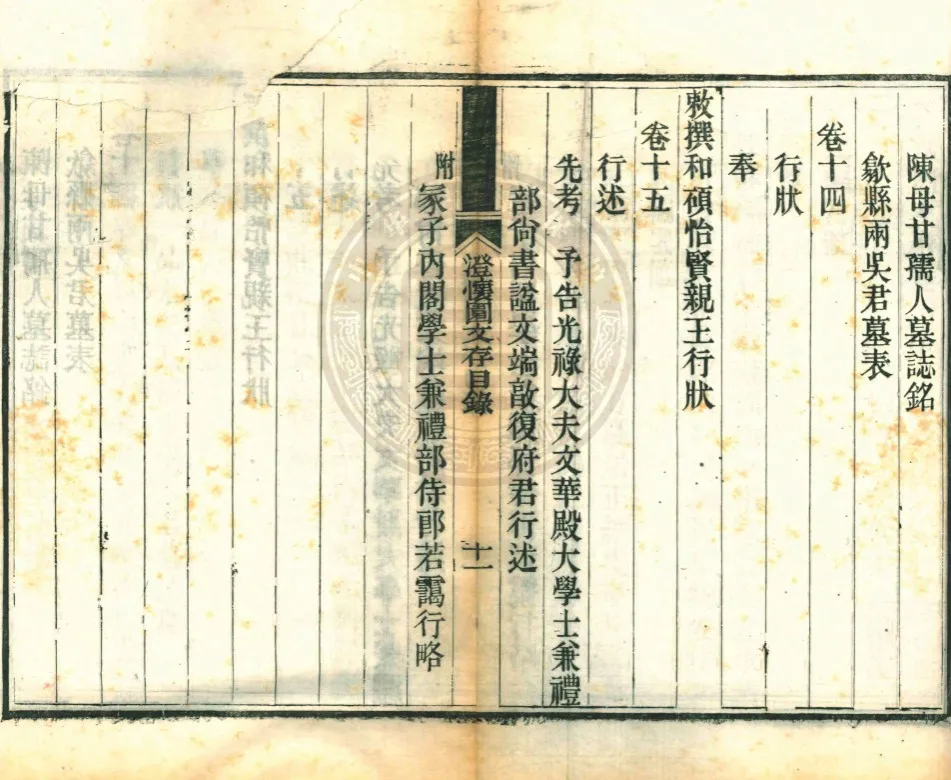 陳母甘孺人墓誌銘
歙縣兩吳君墓表
卷十四
行狀
奉
敕撰和碩怡賢親王行狀
卷十五
行述
先考　予告光祿大夫文華殿大學士兼禮
部尙書諡文端敦復府君行述
澄懷園文存目錄　十一
附　冡子內閣學士兼禮部侍郎若靄行略